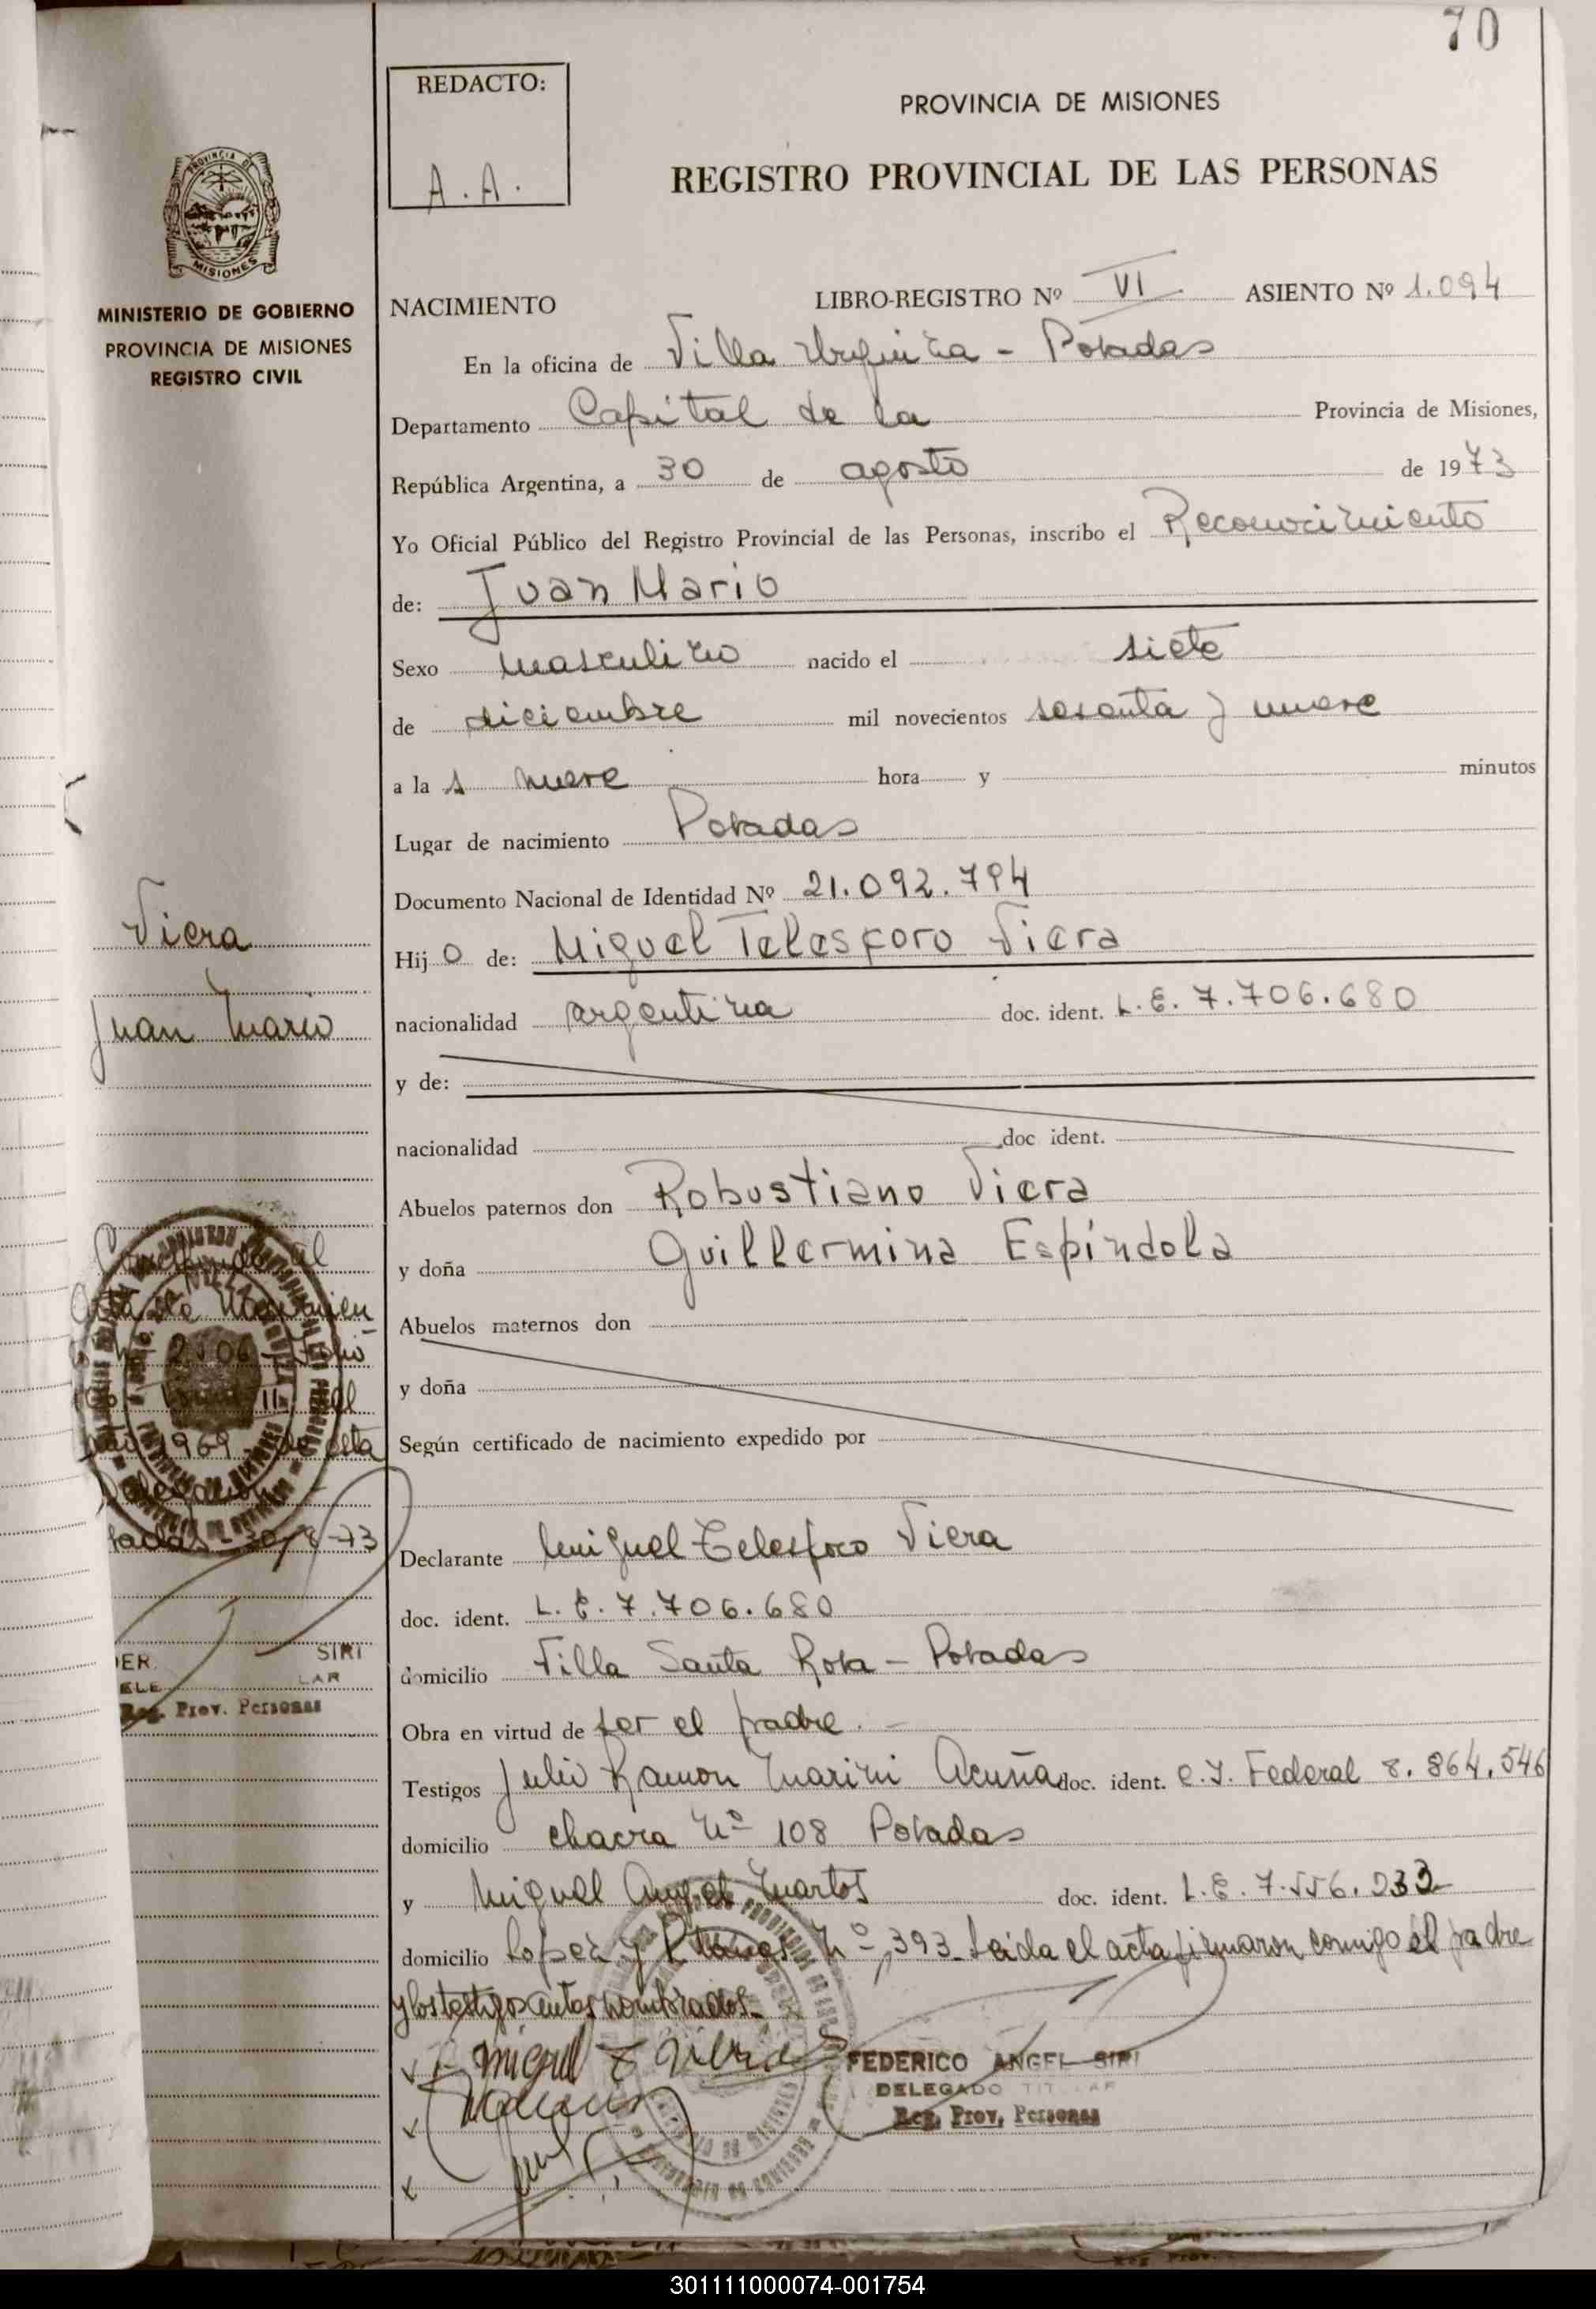 70
REDACTO:
A. A.
PROVINCIA DE MISIONES
REGISTRO PROVINCIAL DE LAS PERSONAS
PROVINCIA DE
MISIONES
MINISTERIO DE GOBIERNO
PROVINCIA DE MISIONES
REGISTRO CIVIL
NACIMIENTO LIBRO-REGISTRO Nº VI ASIENTO Nº 1.094
En la oficina de Villa Urquiza - Posadas
Departamento Capital de la Provincia de Misiones,
República Argentina, a 30 de agosto de 1973
Yo Oficial Público del Registro Provincial de las Personas, inscribo el Reconocimiento
de: Juan Mario
Sexo masculino nacido el siete
de diciembre mil novecientos sesenta y nueve
a la s nueve hora y minutos
Lugar de nacimiento Posadas
Documento Nacional de Identidad Nº 21.092.794
Viera
Juan Mario
Hij o de: Miguel Telesforo Viera
nacionalidad argentina doc. ident. L.E. 7.706.680
y de:
nacionalidad doc ident.
Abuelos paternos don Robustiano Viera
y doña Guillermina Espíndola
Abuelos maternos don
y doña
Según certificado de nacimiento expedido por
Acta de
2506 Folio
1969 de esta
Delegación
30/8-73
SIRI
LAR
Reg. Prov. Personas
Declarante Miguel Telesforo Viera
doc. ident. L.E. 7.706.680
domicilio Villa Santa Rosa - Posadas
Obra en virtud de ser el padre. -
Testigos Julio Ramon Marini Acuña doc. ident. C.I. Federal 8.864.546
domicilio chacra Nº 108 Posadas
y Miguel Angel Martos doc. ident. L.E. 7.556.233
domicilio Lopez y Planes Nº 393. Leida el acta firmaron comigo el padre
y los testigos antes nombrados.
Miguel T Viera
FEDERICO ANGEL SIRI
DELEGADO TIT AR
Reg. Prov. Personas
301111000074-001754